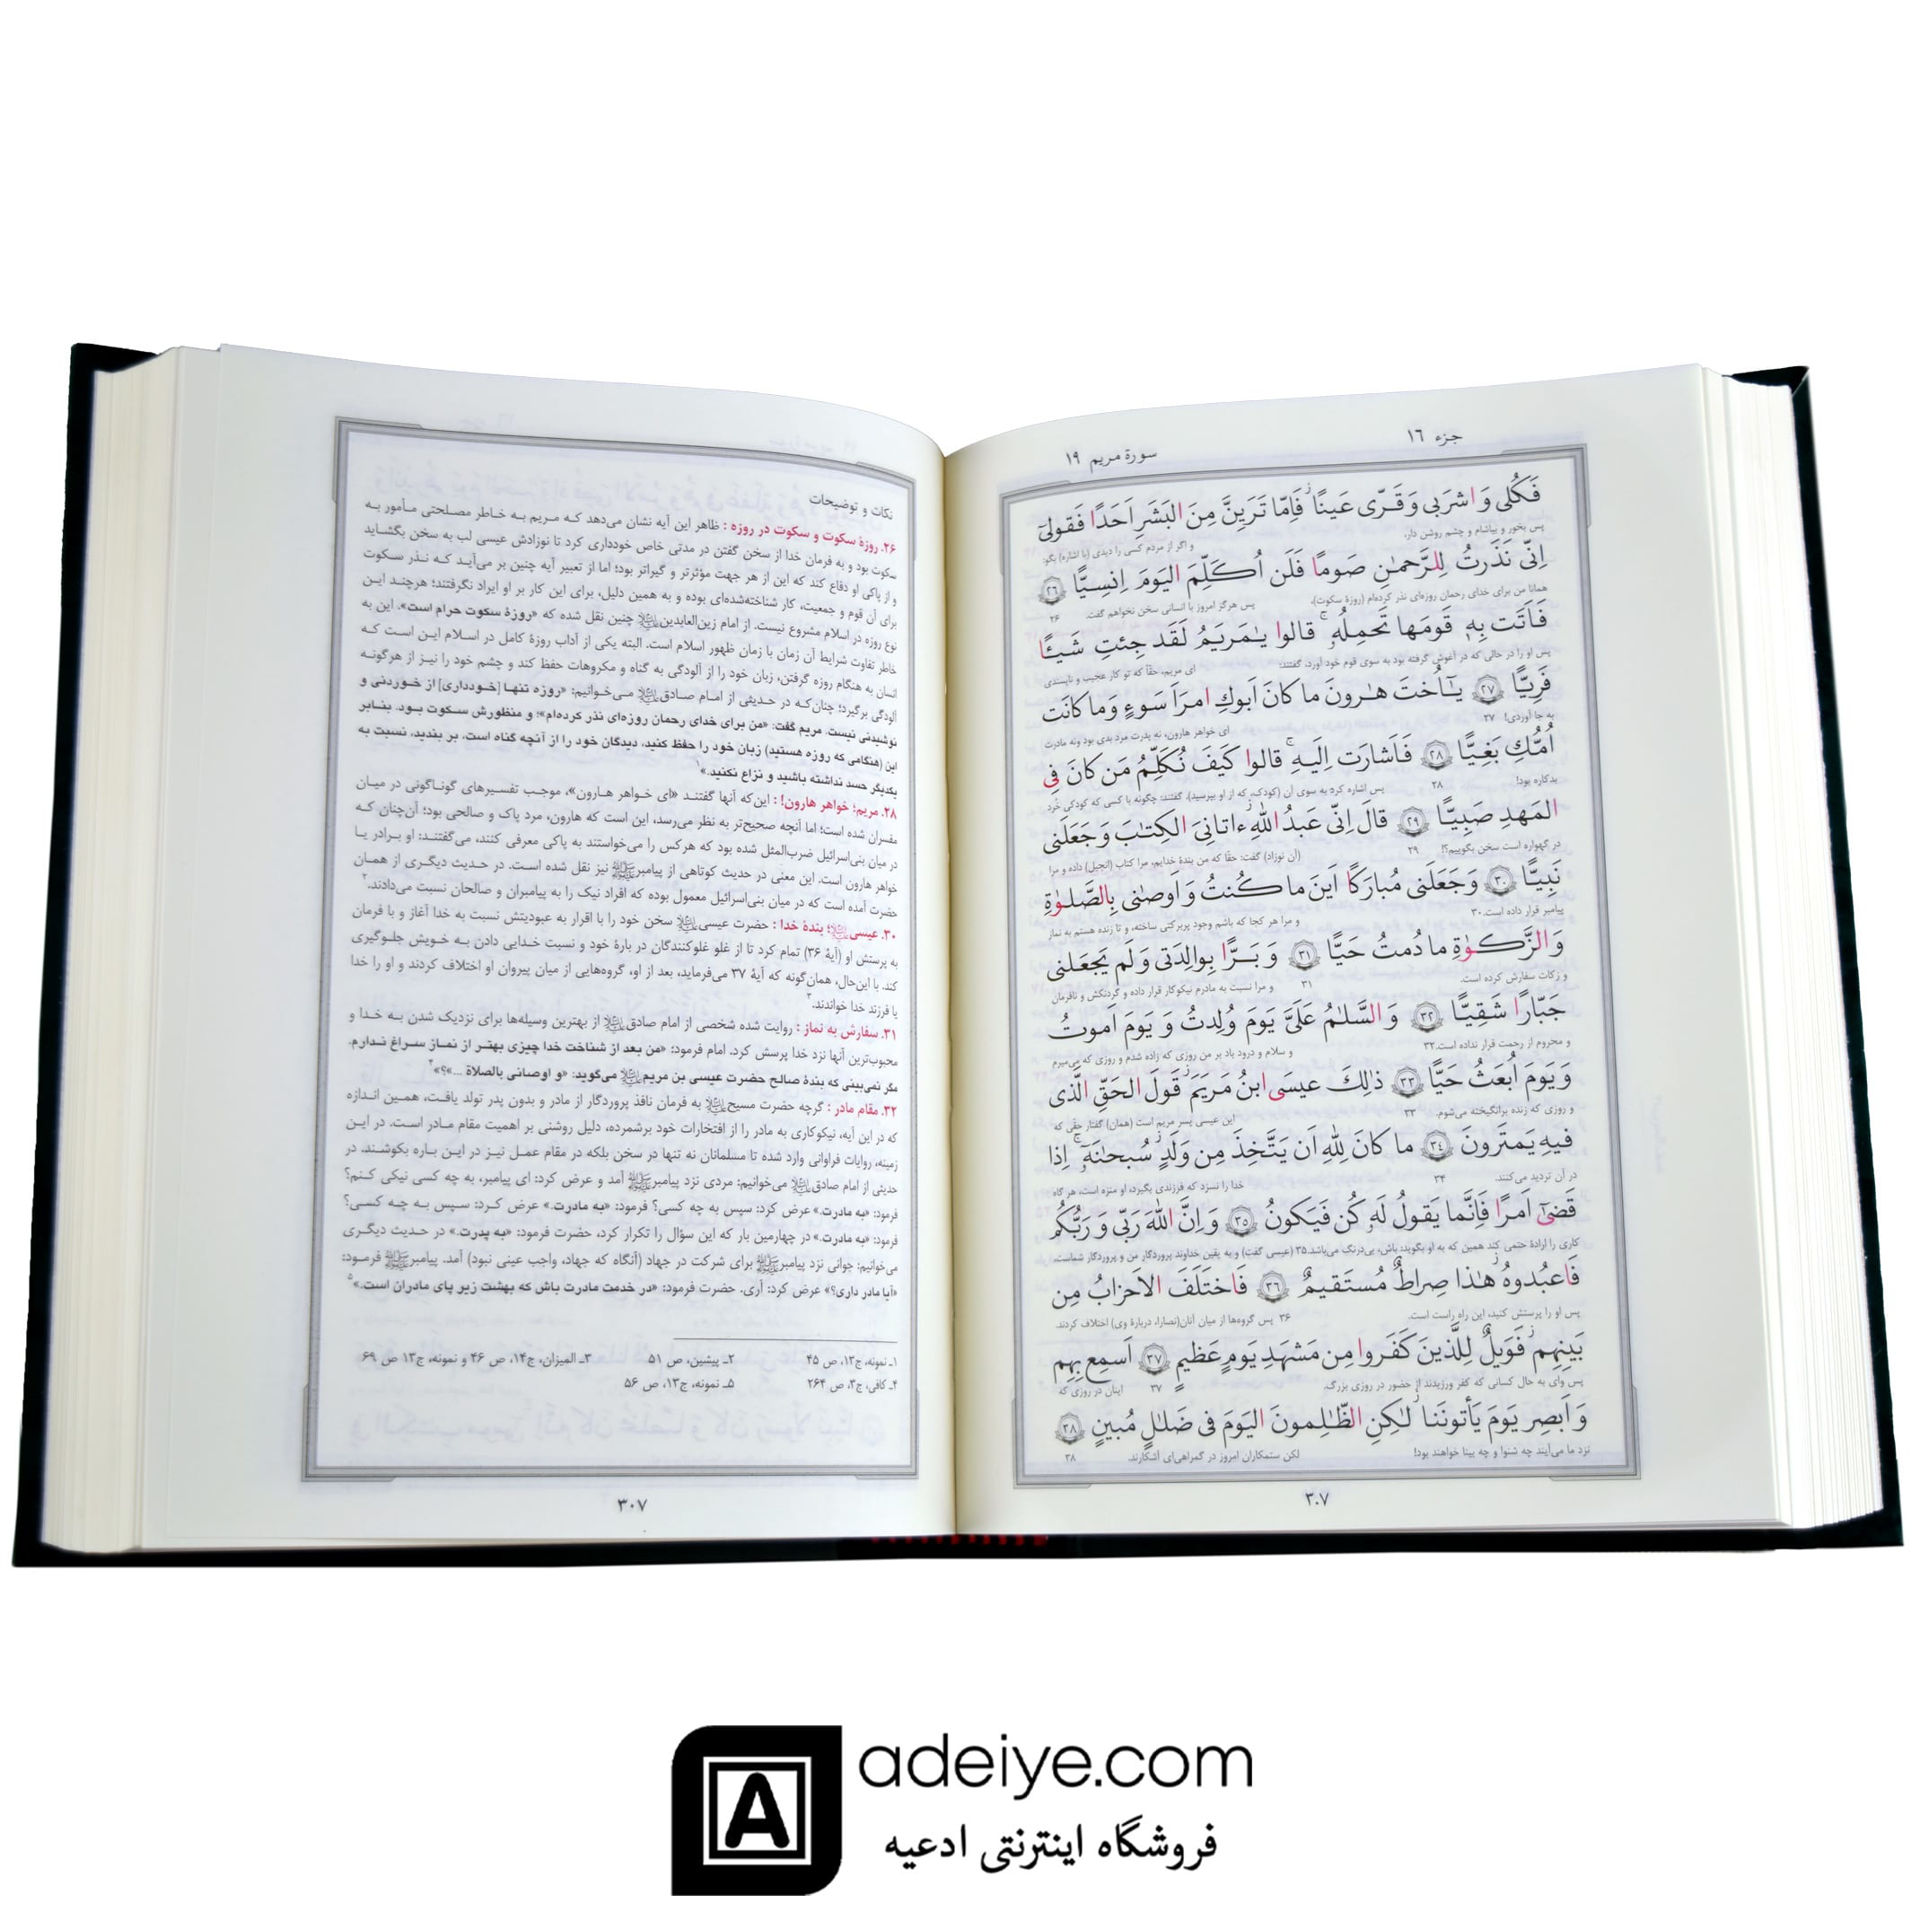 جزء ١٦
سورة مريم ١٩
فَكُلى وَ اشرَبى وَ قَرّى عَينًا ۖ فَاِمّا تَرَيِنَّ مِنَ البَشَرِ اَحَدًا فَقولىٓ
پس بخور و بیاشام و چشم روشن دار، و اگر از مردم کسی را دیدی (با اشاره) بگو:
اِنّى نَذَرتُ لِلرَّحمٰنِ صَومًا فَلَن اُكَلِّمَ اليَومَ اِنسِيًّا ﴿٢٦﴾
همانا من برای خدای رحمان روزه‌ای نذر کرده‌ام (روزهٔ سکوت)، پس هرگز امروز با انسانی سخن نخواهم گفت. ۲۶
فَاَتَت بِهٖ قَومَها تَحمِلُهٗ ۖ قالوا يٰمَريَمُ لَقَد جِئتِ شَيـًٔا
پس او را در حالی که در آغوش گرفته بود به سوی قوم خود آورد، گفتند: ای مریم، حقّاً که تو کار عجیب و ناپسندی
فَرِيًّا ﴿٢٧﴾ يٰٓاُختَ هٰرونَ ما كانَ اَبوكِ امرَاَ سَوءٍ وَ ما كانَت
به جا آوردی! ۲۷ ای خواهر هارون، نه پدرت مرد بدی بود ونه مادرت
اُمُّكِ بَغِيًّا ﴿٢٨﴾ فَاَشارَت اِلَيهِ ۖ قالوا كَيفَ نُكَلِّمُ مَن كانَ فِى
بدکاره بود! ۲۸ پس اشاره کرد به سوی آن (کودک، که از او بپرسید). گفتند: چگونه با کسی که کودکی خُرد
المَهدِ صَبِيًّا ﴿٢٩﴾ قالَ اِنّى عَبدُ اللّٰهِ ءاتانِىَ الكِتٰبَ وَ جَعَلَنى
در گهواره است سخن بگوییم؟! ۲۹ (آن نوزاد) گفت: حقّا که من بندهٔ خدایم، مرا کتاب (انجیل) داده و مرا
نَبِيًّا ﴿٣٠﴾ وَ جَعَلَنى مُبارَكًا اَينَ ما كُنتُ وَ اَوصٰنى بِالصَّلوٰةِ
پیامبر قرار داده است. ۳۰ و مرا هر کجا که باشم وجود پربرکتی ساخته، و تا زنده هستم به نماز
وَ الزَّكوٰةِ ما دُمتُ حَيًّا ﴿٣١﴾ وَ بَرًّا بِوالِدَتى وَ لَم يَجعَلنى
و زکات سفارش کرده است. ۳۱ و مرا نسبت به مادرم نیکوکار قرار داده و گردنکش و نافرمان
جَبّارًا شَقِيًّا ﴿٣٢﴾ وَ السَّلٰمُ عَلَىَّ يَومَ وُلِدتُ وَ يَومَ اَموتُ
و محروم از رحمت قرار نداده است. ۳۲ و سلام و درود باد بر من روزی که زاده شدم و روزی که می‌میرم
وَ يَومَ اُبعَثُ حَيًّا ﴿٣٣﴾ ذٰلِكَ عيسَى ابنُ مَريَمَ ۖ قَولَ الحَقِّ الَّذى
و روزی که زنده برانگیخته می‌شوم. ۳۳ این عیسی پسر مریم است (همان) گفتار حقّی که
فيهِ يَمتَرونَ ﴿٣٤﴾ ما كانَ لِلّٰهِ اَن يَتَّخِذَ مِن وَلَدٍ ۖ سُبحٰنَهٗٓ ۚ اِذا
در آن تردید می‌کنند. ۳۴ خدا را نسزد که فرزندی بگیرد، او منزه است، هر گاه
قَضىٰٓ اَمرًا فَاِنَّما يَقولُ لَهٗ كُن فَيَكونُ ﴿٣٥﴾ وَ اِنَّ اللّٰهَ رَبّى وَ رَبُّكُم
کاری را ارادهٔ حتمی کند همین که به او بگوید: باش، بی‌درنگ می‌باشد. ۳۵ (عیسی گفت) و به یقین خداوند پروردگار من و پروردگار شماست،
فَاعبُدوهُ ۚ هٰذا صِراطٌ مُستَقيمٌ ﴿٣٦﴾ فَاختَلَفَ الاَحزابُ مِن
پس او را پرستش کنید، این راه راست است. ۳۶ پس گروه‌ها از میان آنان(نصارا، دربارهٔ وی) اختلاف کردند.
بَينِهِم ۖ فَوَيلٌ لِلَّذينَ كَفَروا مِن مَشهَدِ يَومٍ عَظيمٍ ﴿٣٧﴾ اَسمِع بِهِم
پس وای به حال کسانی که کفر ورزیدند از حضور در روزی بزرگ. ۳۷ اینان در روزی که
وَ اَبصِر يَومَ يَأتونَنا ۖ لٰكِنِ الظّٰلِمونَ اليَومَ فى ضَلٰلٍ مُبينٍ ﴿٣٨﴾
نزد ما می‌آیند چه شنوا و چه بینا خواهند بود! لکن ستمکاران امروز در گمراهی‌ای آشکارند. ۳۸
۳۰۷
نکات و توضیحات
۲۶. روزهٔ سکوت و سکوت در روزه : ظاهر این آیه نشان می‌دهد که مریم به خاطر مصلحتی مأمور به
سکوت بود و به فرمان خدا از سخن گفتن در مدتی خاص خودداری کرد تا نوزادش عیسی لب به سخن بگشاید
و از پاکی او دفاع کند که این از هر جهت مؤثرتر و گیراتر بود؛ اما از تعبیر آیه چنین بر می‌آید که نذر سکوت
برای آن قوم و جمعیت، کار شناخته‌شده‌ای بوده و به همین دلیل، برای این کار بر او ایراد نگرفتند؛ هرچند این
نوع روزه در اسلام مشروع نیست. از امام زین‌العابدین چنین نقل شده که «روزهٔ سکوت حرام است». این به
خاطر تفاوت شرایط آن زمان با زمان ظهور اسلام است. البته یکی از آداب روزهٔ کامل در اسلام این است که
انسان به هنگام روزه گرفتن، زبان خود را از آلودگی به گناه و مکروهات حفظ کند و چشم خود را نیز از هرگونه
آلودگی برگیرد؛ چنان‌که در حدیثی از امام صادق می‌خوانیم: «روزه تنها [خودداری] از خوردنی و
نوشیدنی نیست. مریم گفت: «من برای خدای رحمان روزه‌ای نذر کرده‌ام»؛ و منظورش سکوت بود. بنابر
این (هنگامی که روزه هستید) زبان خود را حفظ کنید، دیدگان خود را از آنچه گناه است، بر بندید، نسبت به
یکدیگر حسد نداشته باشید و نزاع نکنید.»۱
۲۸. مریم؛ خواهر هارون! : این‌که آنها گفتند «ای خواهر هارون»، موجب تفسیرهای گوناگونی در میان
مفسران شده است؛ اما آنچه صحیح‌تر به نظر می‌رسد، این است که هارون، مرد پاک و صالحی بود؛ آن‌چنان که
در میان بنی‌اسرائیل ضرب‌المثل شده بود که هرکس را می‌خواستند به پاکی معرفی کنند، می‌گفتند: او برادر یا
خواهر هارون است. این معنی در حدیث کوتاهی از پیامبرﷺ نیز نقل شده است. در حدیث دیگری از همان
حضرت آمده است که در میان بنی‌اسرائیل معمول بوده که افراد نیک را به پیامبران و صالحان نسبت می‌دادند.۲
۳۰. عیسی؛ بندهٔ خدا : حضرت عیسی سخن خود را با اقرار به عبودیتش نسبت به خدا آغاز و با فرمان
به پرستش او (آیهٔ ۳۶) تمام کرد تا از غلو غلوکنندگان در بارهٔ خود و نسبت خدایی دادن به خویش جلوگیری
کند. با این‌حال، همان‌گونه که آیهٔ ۳۷ می‌فرماید، بعد از او، گروه‌هایی از میان پیروان او اختلاف کردند و او را خدا
یا فرزند خدا خواندند.۳
۳۱. سفارش به نماز : روایت شده شخصی از امام صادق از بهترین وسیله‌ها برای نزدیک شدن به خدا و
محبوب‌ترین آنها نزد خدا پرسش کرد. امام فرمود: «من بعد از شناخت خدا چیزی بهتر از نماز سراغ ندارم.
مگر نمی‌بینی که بندهٔ صالح حضرت عیسی بن مریم می‌گوید: «و اوصانی بالصلاة ...»؟»۴
۳۲. مقام مادر : گرچه حضرت مسیح به فرمان نافذ پروردگار از مادر و بدون پدر تولد یافت، همین اندازه
که در این آیه، نیکوکاری به مادر را از افتخارات خود برشمرده، دلیل روشنی بر اهمیت مقام مادر است. در این
زمینه، روایات فراوانی وارد شده تا مسلمانان نه تنها در سخن بلکه در مقام عمل نیز در این باره بکوشند. در
حدیثی از امام صادق می‌خوانیم: مردی نزد پیامبرﷺ آمد و عرض کرد: ای پیامبر، به چه کسی نیکی کنم؟
فرمود: «به مادرت.» عرض کرد: سپس به چه کسی؟ فرمود: «به مادرت.» عرض کرد: سپس به چه کسی؟
فرمود: «به مادرت.» در چهارمین بار که این سؤال را تکرار کرد، حضرت فرمود: «به پدرت.» در حدیث دیگری
می‌خوانیم: جوانی نزد پیامبرﷺ برای شرکت در جهاد (آنگاه که جهاد، واجب عینی نبود) آمد. پیامبرﷺ فرمود:
«آیا مادر داری؟» عرض کرد: آری. حضرت فرمود: «در خدمت مادرت باش که بهشت زیر پای مادران است.»۵
۱ـ نمونه، ج۱۳، ص ۴۵ ۲ـ پیشین، ص ۵۱ ۳ـ المیزان، ج۱۴، ص ۴۶ و نمونه، ج۱۳ ص ۶۹
۴ـ کافی، ج۳، ص ۲۶۴ ۵ـ نمونه، ج۱۳، ص ۵۶
۳۰۷
A adeiye.com
فروشگاه اینترنتی ادعیه